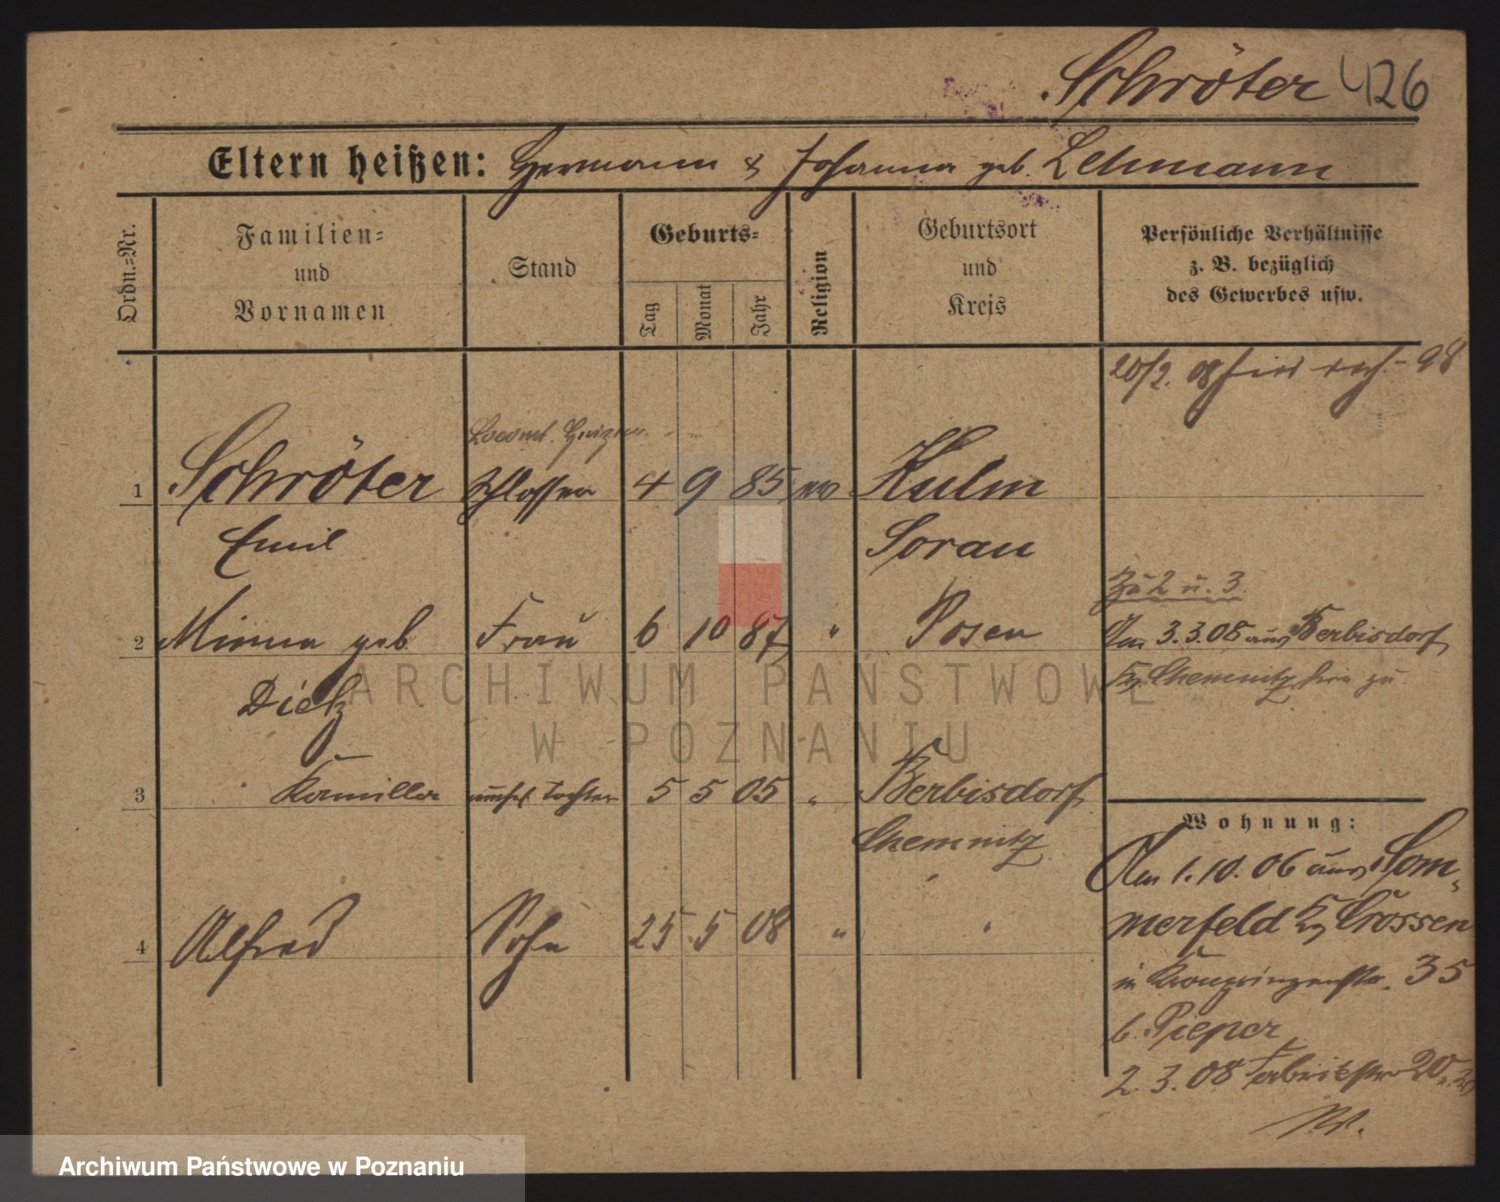 Schröter 426
Eltern heißen: Hermann & Johanna geb. Lehmann
Ordn.=Nr.
Familien=
und
Vornamen
Stand
Geburts=
Tag
Monat
Jahr
Religion
Geburtsort
und
Kreis
Persönliche Verhältnisse
z. B. bezüglich
des Gewerbes usw.
20/2. 08
Locomt. Heizer
1 Schröter Schlosser 4 9 85 ev Kulm
Emil Sorau
Zu 2 u. 3
2 Minna geb. Frau 6 10 87 " Posen
Am 3.3.08 aus Berbisdorf
Dietz
Kr Chemnitz hier zu
3 Kamilla Tochter 5 5 05 " Berbisdorf
Chemnitz
4 Alfred Sohn 25 5 08 "
Wohnung:
Am 1.10.06 aus Som-
merfeld Kr Crossen
in Kronprinzenstr. 35
b. Pieper
2.3.08 Fabrikstr 20
ARCHIWUM PAŃSTWOWE
W POZNANIU
Archiwum Państwowe w Poznaniu